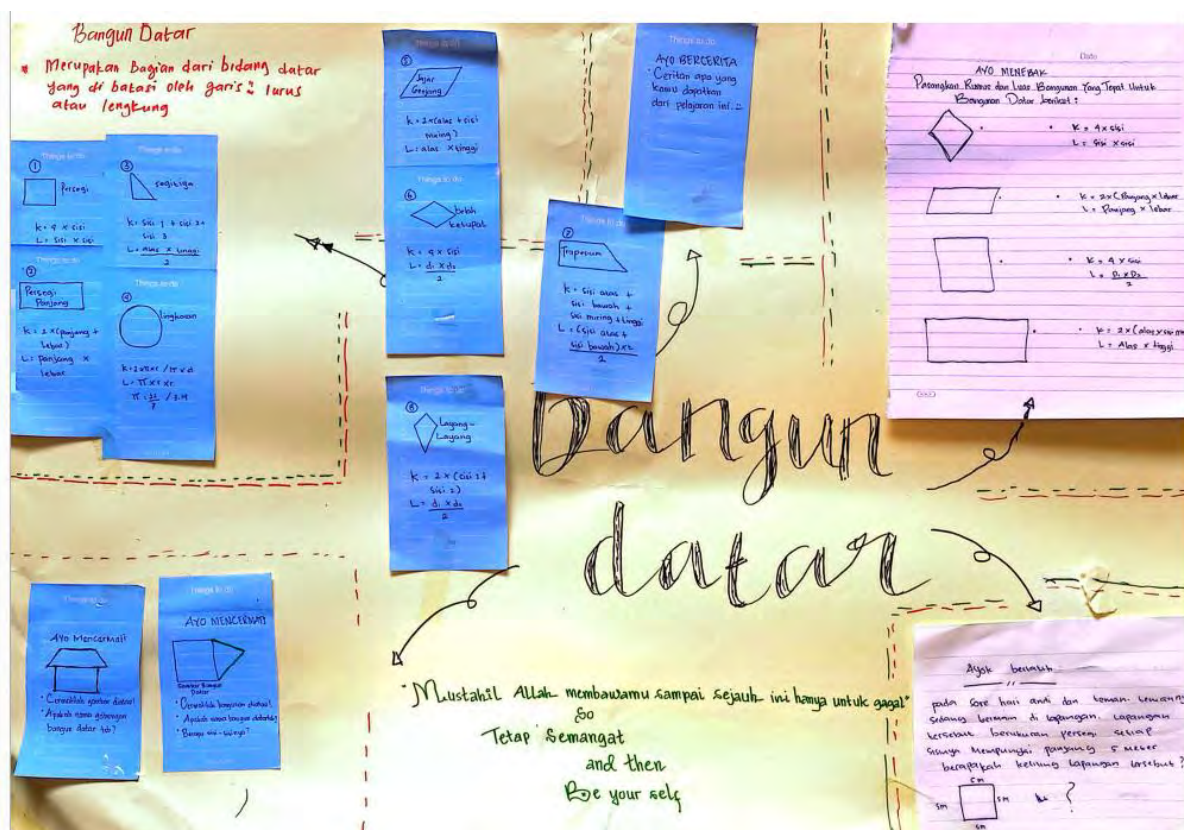 Bangun Datar
* Merupakan Bagian dari bidang datar
yang di batasi oleh garis² lurus
atau lengkung
Things to do
①
Persegi
K = 4 x sisi
L = sisi x sisi
Things to do
②
Persegi
Panjang
K = 2 x (panjang +
lebar)
L = panjang x
lebar
Things to do
③
Segitiga
K = sisi 1 + sisi 2 +
sisi 3
L = alas x tinggi
2
Things to do
④
lingkaran
K = 2 x π x r / π x d
L = π x r x r
π = 22 / 3.14
7
Things to do
⑤
Jajar
Genjang
K = 2 x (alas + sisi
miring)
L = alas x tinggi
Things to do
⑥
belah
ketupat
K = 4 x sisi
L = d1 x d2
2
Things to do
⑦
Trapesium
K = sisi atas +
sisi bawah +
sisi miring + tinggi
L = (sisi atas +
sisi bawah) x t
2
Things to do
⑧
Layang-
Layang
K = 2 x (sisi 1 +
sisi 2)
L = d1 x d2
2
Things to do
AYO BERCERITA
Ceritan apa yang
kamu dapatkan
dari pelajaran ini.
Date
AYO MENEBAK
Pasangkan Rumus dan Luas Bangunan Yang Tepat Untuk
Bangunan Datar berikut :
K = 4 x sisi
L = sisi x sisi
K = 2 x (Panjang x lebar
L = Panjang x lebar
K = 4 x sisi
L = D1 x D2
2
K = 2 x (alas x sisi
L = Alas x tinggi
bangun
datar
Things to do
Ayo Mencermati
• Cermatilah gambar diatas!
• Apakah nama gabungan
bangun datar tsb?
Things to do
AYO MENCERMATI
Gambar Bangun
Datar
• Cermatilah bangunan diatas!
• Apakah nama bangun datar
• Berapa sisi-sisinya?
"Mustahil Allah membawamu sampai sejauh ini hanya untuk gagal"
So
Tetap Semangat
and then
Be your self
Ayok berlatih
pada sore hari andi dan teman temannya
sedang bermain di lapangan. Lapangan
tersebut berukuran persegi setiap
sisinya mempunyai panjang 5 meter
berapakah keliling lapangan tersebut?
5m
5m
5m
?
5m